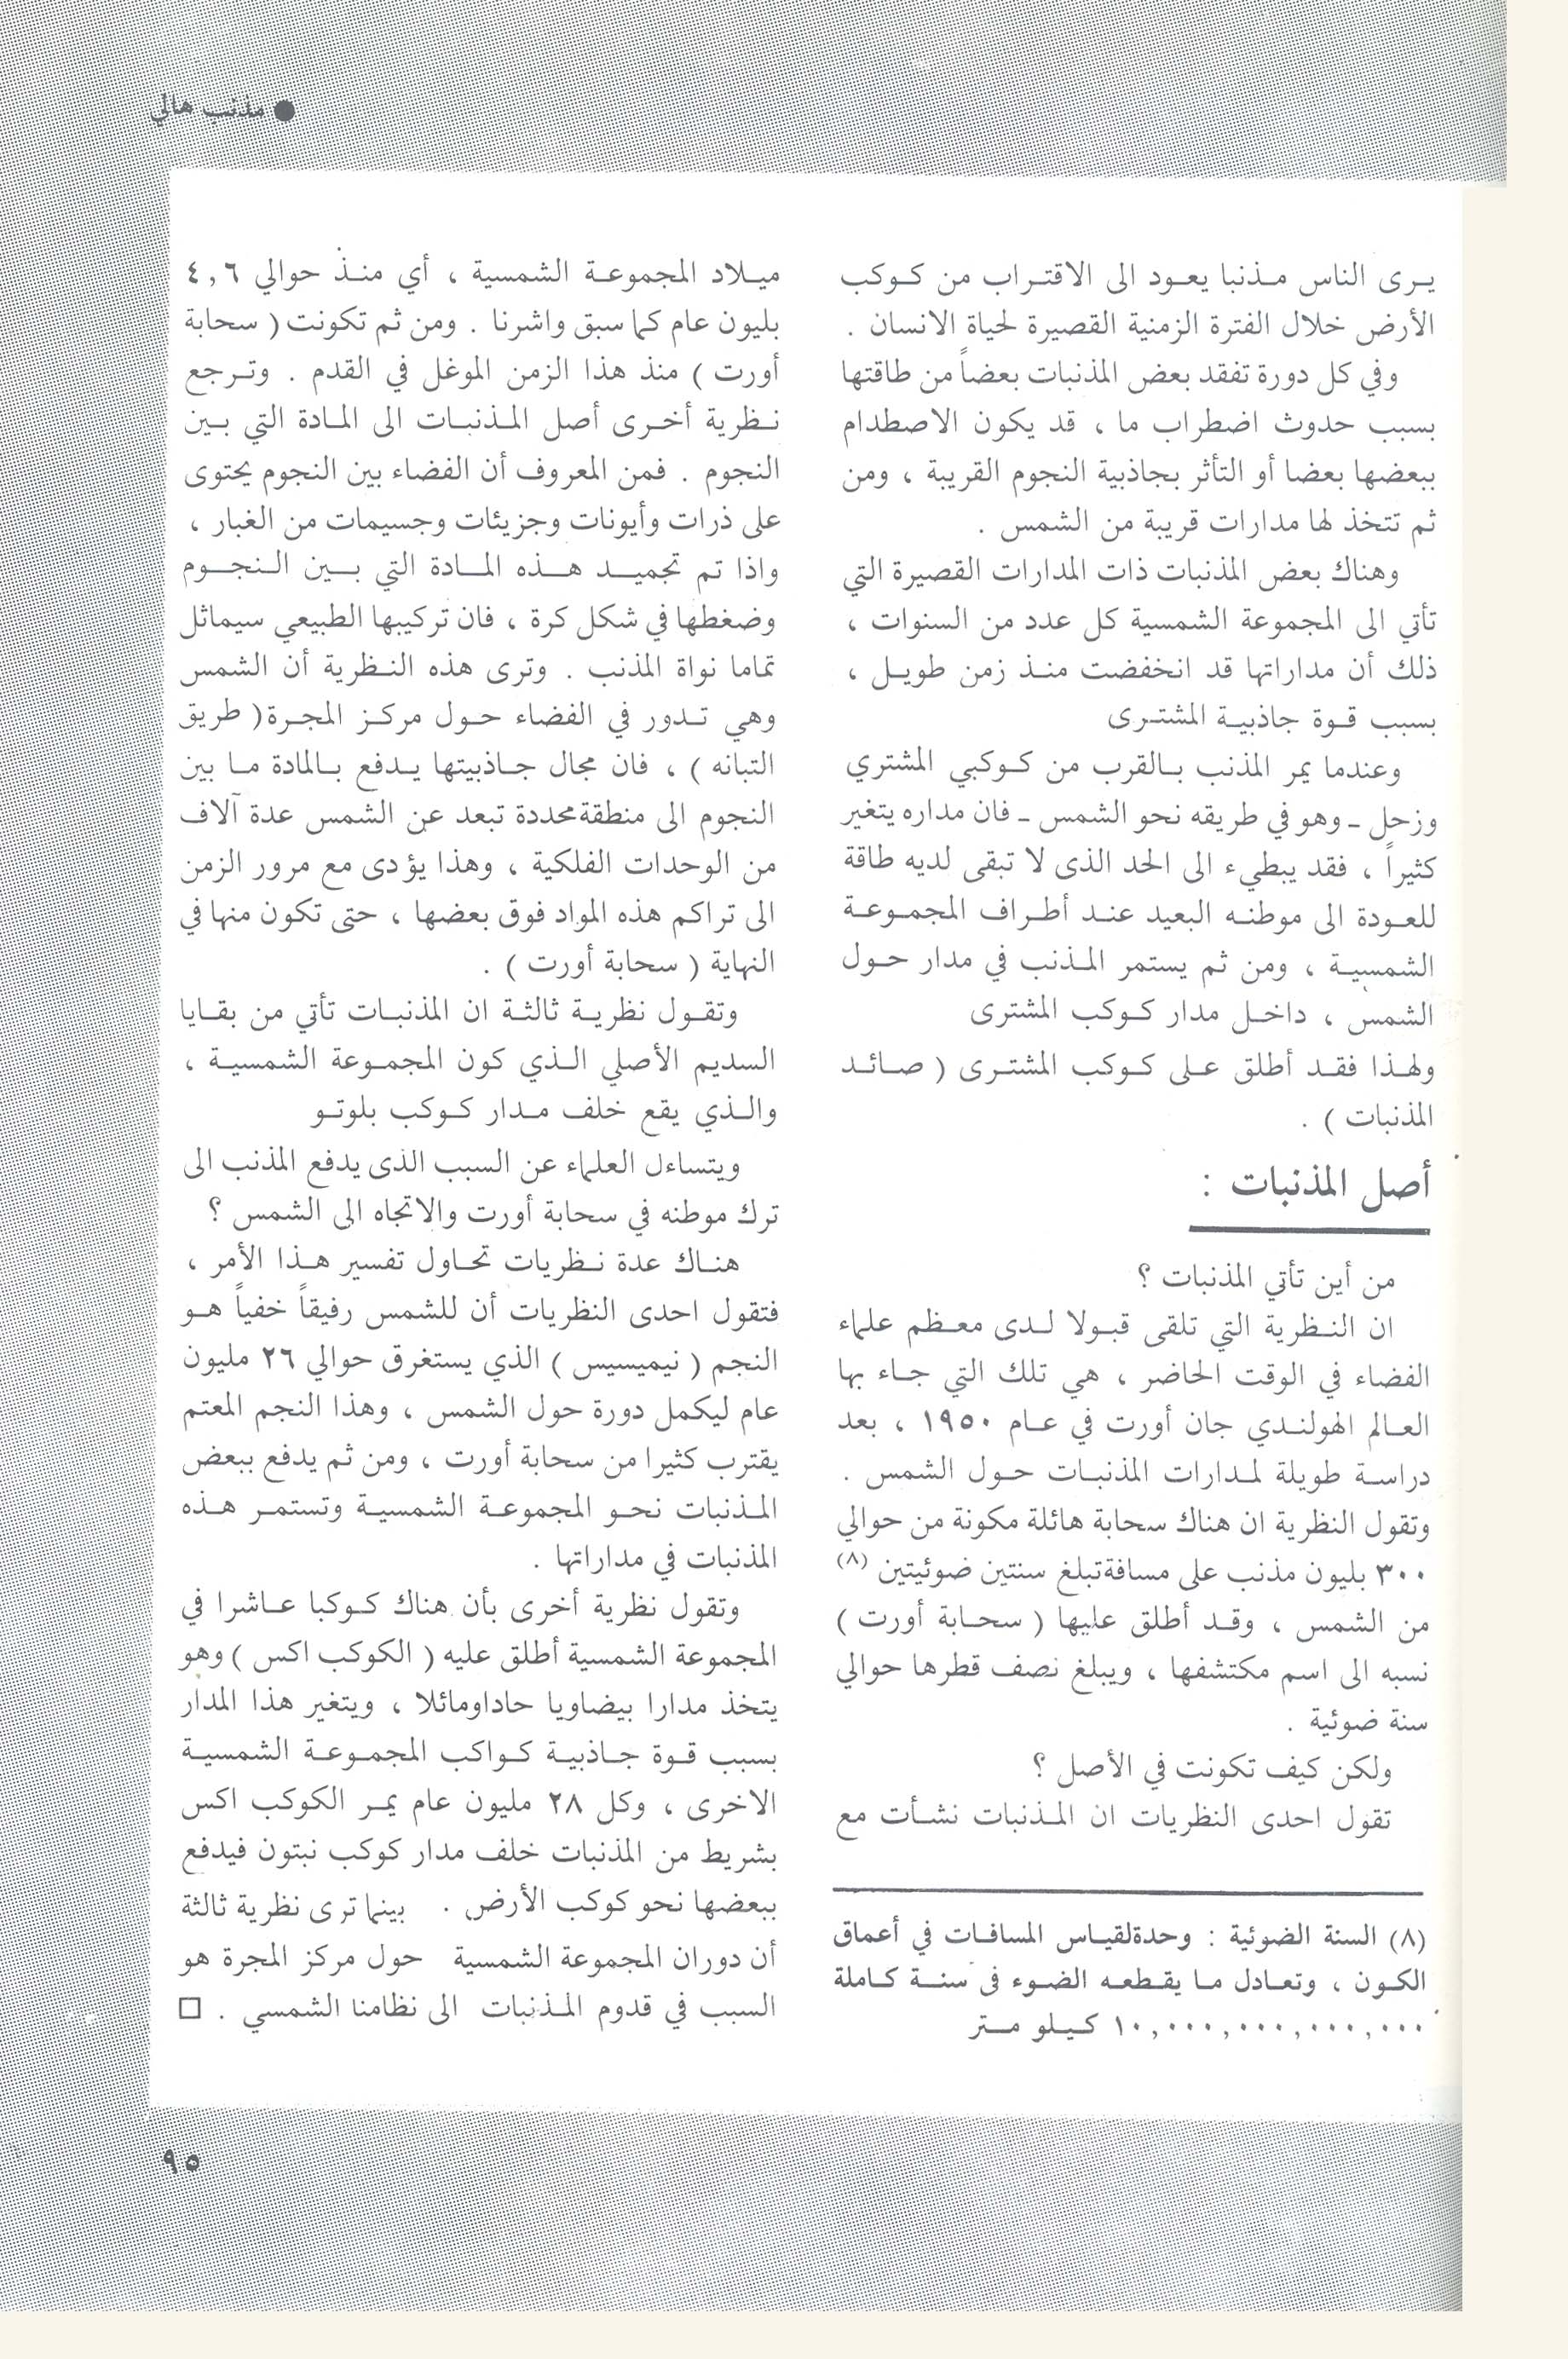 ● مذنب هالي
يرى الناس مذنبا يعود الى الاقتراب من كوكب
الأرض خلال الفترة الزمنية القصيرة لحياة الانسان .
وفي كل دورة تفقد بعض المذنبات بعضاً من طاقتها
بسبب حدوث اضطراب ما ، قد يكون الاصطدام
ببعضها بعضا أو التأثر بجاذبية النجوم القريبة ، ومن
ثم تتخذ لها مدارات قريبة من الشمس .
وهناك بعض المذنبات ذات المدارات القصيرة التي
تأتي الى المجموعة الشمسية كل عدد من السنوات ،
ذلك أن مداراتها قد انخفضت منذ زمن طويل ،
بسبب قوة جاذبية المشترى
وعندما يمر المذنب بالقرب من كوكبي المشتري
وزحل - وهو في طريقه نحو الشمس - فان مداره يتغير
كثيراً ، فقد يبطيء الى الحد الذى لا تبقى لديه طاقة
للعودة الى موطنه البعيد عند أطراف المجموعة
الشمسية ، ومن ثم يستمر المذنب في مدار حول
الشمس ، داخل مدار كوكب المشترى
ولهذا فقد أطلق على كوكب المشترى ( صائد
المذنبات ) .
أصل المذنبات :
من أين تأتي المذنبات ؟
ان النظرية التي تلقى قبولا لدى معظم علماء
الفضاء في الوقت الحاضر ، هي تلك التي جاء بها
العالم الهولندي جان أورت في عام ١٩٥٠ ، بعد
دراسة طويلة لمدارات المذنبات حول الشمس .
وتقول النظرية ان هناك سحابة هائلة مكونة من حوالي
٣٠٠ بليون مذنب على مسافة تبلغ سنتين ضوئيتين (٨)
من الشمس ، وقد أطلق عليها ( سحابة أورت )
نسبه الى اسم مكتشفها ، ويبلغ نصف قطرها حوالي
سنة ضوئية .
ولكن كيف تكونت في الأصل ؟
تقول احدى النظريات ان المذنبات نشأت مع
(٨) السنة الضوئية : وحدة لقياس المسافات في أعماق
الكون ، وتعادل ما يقطعه الضوء فى سنة كاملة
١٠,٠٠٠,٠٠٠,٠٠٠,٠٠٠ كيلو متر
ميلاد المجموعة الشمسية ، أي منذ حوالي ٤,٦
بليون عام كما سبق واشرنا . ومن ثم تكونت ( سحابة
أورت ) منذ هذا الزمن الموغل في القدم . وترجع
نظرية أخرى أصل المذنبات الى المادة التي بين
النجوم . فمن المعروف أن الفضاء بين النجوم يحتوى
على ذرات وأيونات وجزيئات وجسيمات من الغبار ،
واذا تم تجميد هذه المادة التي بين النجوم
وضغطها في شكل كرة ، فان تركيبها الطبيعي سيماثل
تماما نواة المذنب . وترى هذه النظرية أن الشمس
وهي تدور في الفضاء حول مركز المجرة ( طريق
التبانه ) ، فان مجال جاذبيتها يدفع بالمادة ما بين
النجوم الى منطقة محددة تبعد عن الشمس عدة آلاف
من الوحدات الفلكية ، وهذا يؤدى مع مرور الزمن
الى تراكم هذه المواد فوق بعضها ، حتى تكون منها في
النهاية ( سحابة أورت ) .
وتقول نظرية ثالثة ان المذنبات تأتي من بقايا
السديم الأصلي الذي كون المجموعة الشمسية ،
والذي يقع خلف مدار كوكب بلوتو
ويتساءل العلماء عن السبب الذى يدفع المذنب الى
ترك موطنه في سحابة أورت والاتجاه الى الشمس ؟
هناك عدة نظريات تحاول تفسير هذا الأمر ،
فتقول احدى النظريات أن للشمس رفيقاً خفياً هو
النجم ( نيميسيس ) الذي يستغرق حوالي ٢٦ مليون
عام ليكمل دورة حول الشمس ، وهذا النجم المعتم
يقترب كثيرا من سحابة أورت ، ومن ثم يدفع ببعض
المذنبات نحو المجموعة الشمسية وتستمر هذه
المذنبات في مداراتها .
وتقول نظرية أخرى بأن هناك كوكبا عاشرا في
المجموعة الشمسية أطلق عليه ( الكوكب اكس ) وهو
يتخذ مدارا بيضاويا حادا ومائلا ، ويتغير هذا المدار
بسبب قوة جاذبية كواكب المجموعة الشمسية
الاخرى ، وكل ٢٨ مليون عام يمر الكوكب اكس
بشريط من المذنبات خلف مدار كوكب نبتون فيدفع
ببعضها نحو كوكب الأرض . بينما ترى نظرية ثالثة
أن دوران المجموعة الشمسية حول مركز المجرة هو
السبب في قدوم المذنبات الى نظامنا الشمسي . □
٩٥